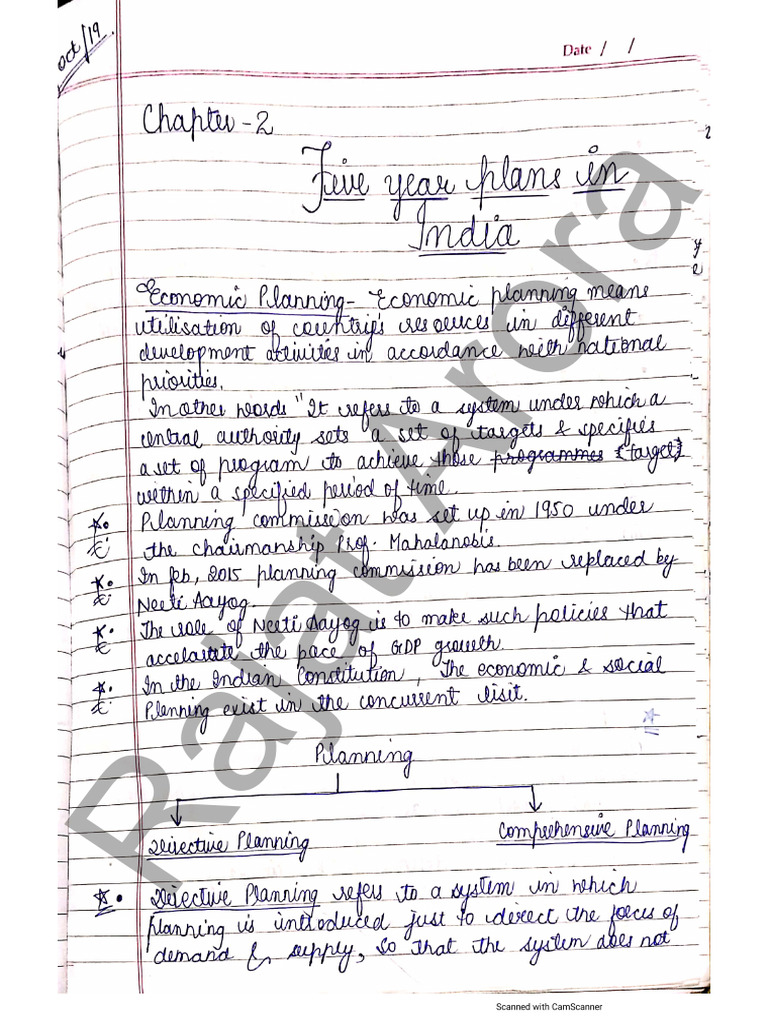 Oct/19.
Date / /
Chapter-2
Five year plans in
India
Economic Planning- Economic planning means
utilisation of country's resources in different
development activities in accordance with national
priorities.
In other words "It refers to a system under which a
central authority sets a set of targets & specifies
a set of program to achieve those programmes {target}
within a specified period of time.
Planning commission was set up in 1950 under
the chairmanship Prof. Mahalanobis.
In feb, 2015 planning commission has been replaced by
Neeti Aayog.
The role of Neeti Aayog is to make such policies that
the pace of GDP growth.
In the Indian Constitution, The economic & social
Planning exist in the concurrent list.
Planning
Directive Planning
Comprehensive Planning
Directive Planning refers to a system in which
planning is introduced just to direct the forces of
demand & supply, so that the system does not
Rajat Arora
Scanned with CamScanner